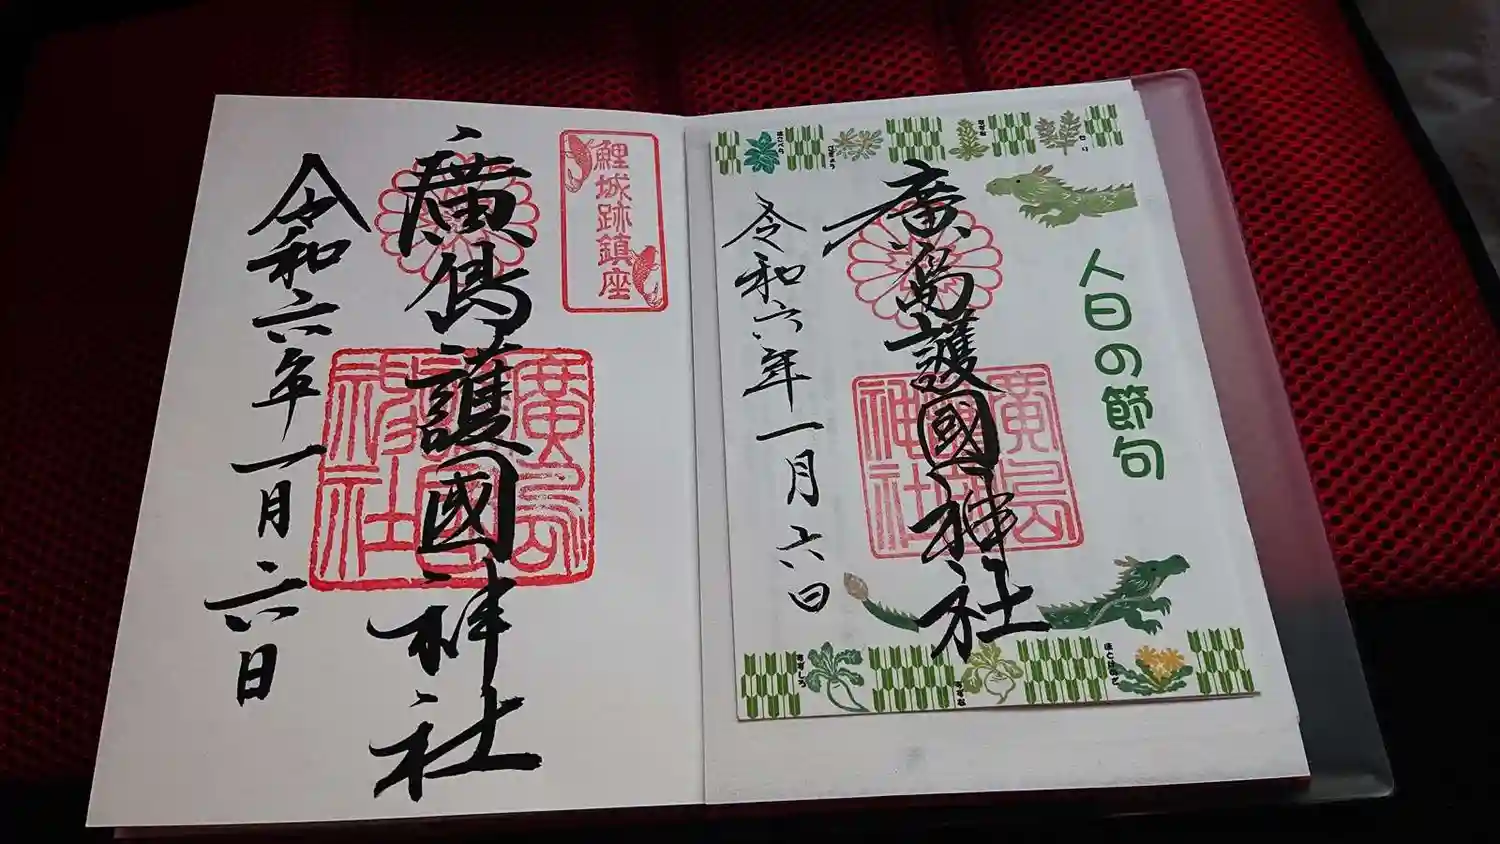 鯉城跡鎮座
廣島護國神社
廣島護國神社
令和六年一月六日
人日の節句
ほとけのざ
すずな
すずしろ
廣島護國神社
廣島神社
令和六年一月六日